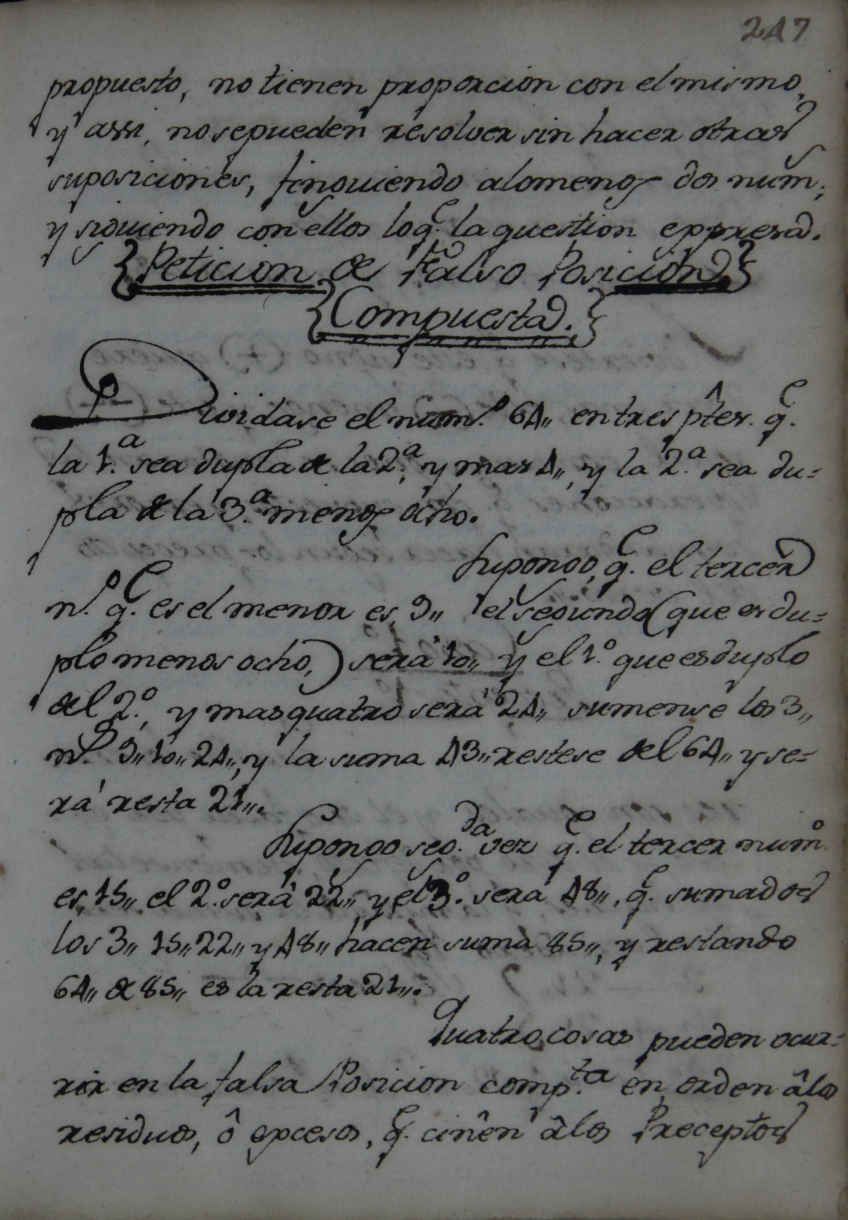 247
propuesto, no tienen proporcion con el mismo,
y assi, no se pueden resolver sin hacer otras
suposiciones, finguiendo alomenos dos num.ˢ
y siguiendo con ellos lo q.ᵉ la question expresa.
{Peticion de Falso Posicion}
{Compuesta.}
Dividase el num.º 64,, en tres ptes. q.ᵉ
la 1.ª sea dupla de la 2.ª, y mas 4,, y la 2.ª sea du=
pla de la 3.ª menos ocho.
Supongo, q.ᵉ el tercer
n.º q.ᵉ es el menor es, 9,, el segundo (que es du=
plo menos ocho,) será 10,, y el 1.º que es duplo
del 2.º, y mas quatro será 24,, sumense los 3,,
n.ˢ 9,, 10,, 24,, y la suma 43,, restese del 64,, y se=
rá resta 21,,.
Supongo seg.da vez q.ᵉ el tercer num.º
es, 15,, el 2.º será 22,, y el 3.º será 48,, q.ᵉ sumados
los 3,, 15,, 22,, y 48,, hacen suma 85,, y restando
64,, de 85,, es la resta 21,,.
Quatro cosas pueden ocur=
rir en la falsa Posicion comp.ta en orden â los
residuos, ô excesos, q.ᵉ ciñen â los Preceptos